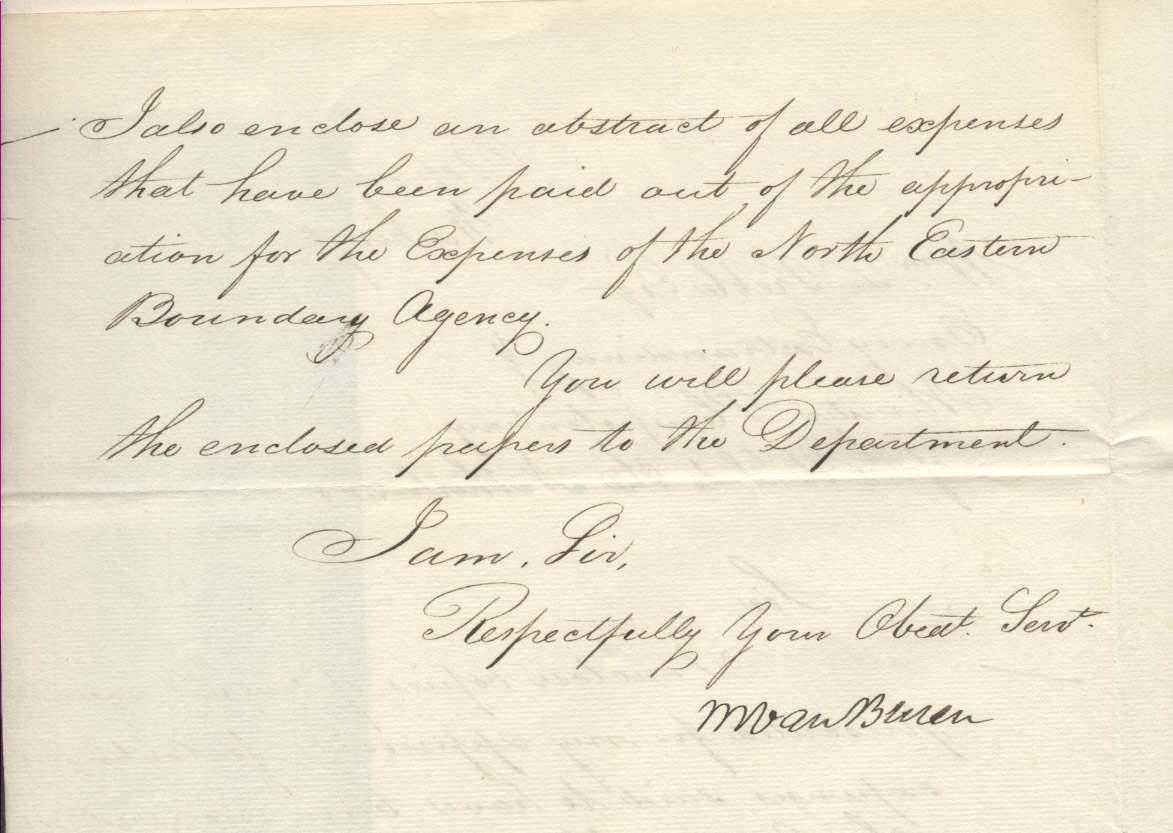 I also enclose an abstract of all expenses
that have been paid out of the appropri-
ation for the Expenses of the North Eastern
Boundary Agency.
You will please return
the enclosed papers to the Department.
I am, Sir,
Respectfully Your Obedt. Servt.
M Van Buren